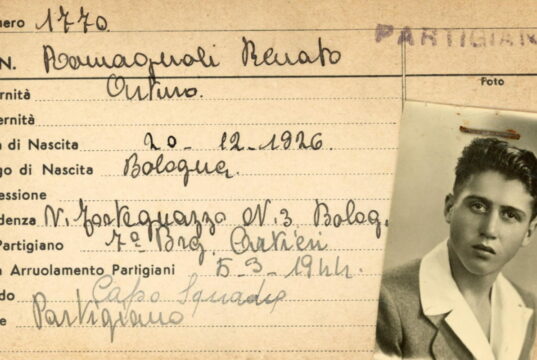 nero 1770
PARTIGIAN
N. Romagnoli Renato
Foto
ernità
ernità
a di Nascita 20-12-1926.
go di Nascita Bologna.
essione
denza V. N. 3 Bolog.
Partigiano 7ª Brg.
a Arruolamento Partigiani 5-3-1944.
do Capo Squadra
e Partigiano